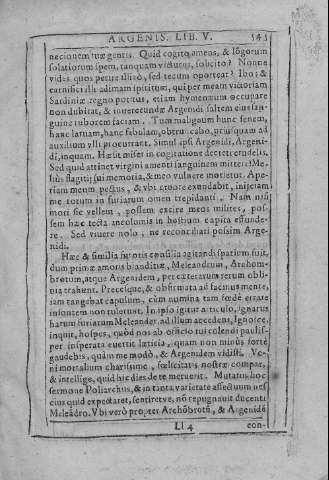 ARGENIS. LIB. V. 543
necionem tuæ gentis. Quid cogito amens, & longorum
solatiorum spem, tanquam victurus, solicito? Nonne
vides quos petere illico, sed tecum oporteat? Ibo; &
carnifici illi adimam spiritum, qui per meam victoriam
Sardiniæ regno potitus, etiam hymenæum occupare
non dubitat, & inverecundæ Argenidi saltem eius san-
guine ruborem faciam. Tum malignum hunc senem,
hanc larvam, hanc fabulam, obtruncabo, priusquam ad
auxilium ulli procurrant. Simul ipsi Argenidi, Argeni-
di, inquam. Hæsit miser in cogitatione de te tei crudelis.
Sed quid attinet virgini amenti sanguinem mitteri? Me-
lius flagitii sui memoria, & meo vulnere morietur. Ape-
riam meum pectus, & ubi cruore exundabit, iniiciam
me totum in furiarum omen trepidanti. Nam nisi
mori sic vellem, possem excire meos milites, pos-
sem hæc tecta incolumis in hostium capita effunde-
re. Sed vivere nolo, ne reconciliari possim Arge-
nidi.
Hæc & similia furoris consilia agitandi spatium fuit,
dum primæ amoris blanditiæ, Meleandrum, Archom-
brotum, atque Argenidem, per cæterarum rerum obli-
via trahent. Precesque, & obfirmata ad facinus mente,
iam tangebat capulum, cùm numina tam fœdè errare
insontem non tulerunt. In ipso igitur articulo, ignarus
harum furiarum Meleander ad illum accedens, Ignosce,
inquit, hospes, quòd nos ab officio tui colendi paulis-
per insperata evertit lætitia, quam non minùs fortè
gaudebis, quàm me modò, & Argenidem vidisti. Ve-
ni mortalium charissime, fœlicitatis nostræ compar,
& intellige, quid hic dies de te meruerit. Mutatus hoc
sermone Poliarchus, & in tanta varietate affectuum nes-
cius quid expectaret, sentiretve, non repugnavit ducenti
Meleãdro. Vbi verò propter Archõbrotũ, & Argenidẽ
Ll 4 con-